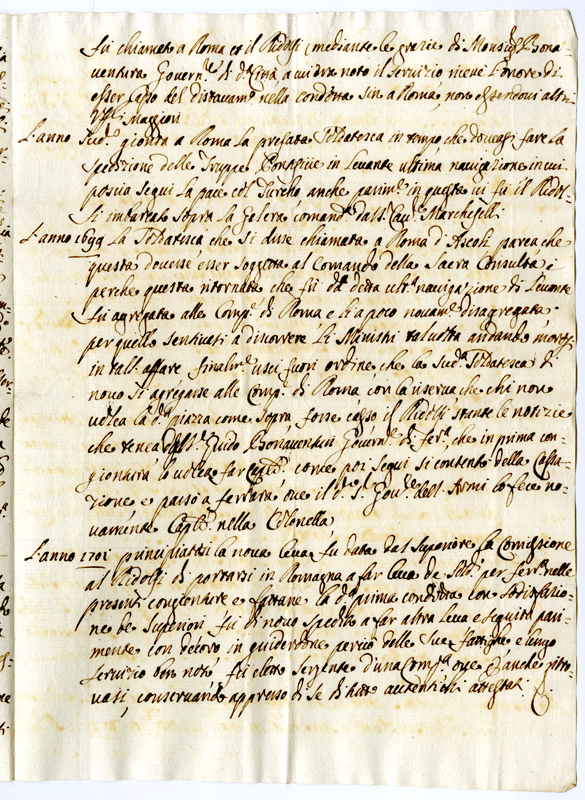 fù chiamato a Roma et il Ridolfi, mediante le grazie di Monsig.r Bona-
ventura Govern.re di d.a Città a cui era noto il servizio riceve l'onore di
esser Capo del distaccam.to nella condotta sin a Roma, non essendovi altri
Uff.li Maggiori
L'anno sud.o gionta a Roma la prefata Soldatesca in tempo che dovea si fare la
spedizione delle Truppe Pontificie in Levante ultima navigazione in cui
poscia seguì la pace col Turcho anche parim.te in questa vi fù il Ridol-
fi imbarcato sopra la Galera comand.a dall. Cav. Marchesell.
L'anno 1699 La Soldatesca che si disse chiamata a Roma d'Ascoli parea che
questa dovesse esser soggetta al Comando della Sacra Consulta e
perche questa ritornata che fù d.a detta ult.a navigazione di Levante
fù agregata alle Comp.e di Roma e lì a poco novam.te disagregata
per quello sentivasi a discorrere li Ministri talvolta andando
in tall affare finalm.te uscì fuori ordine che la sud.a Soldatesca di
novo si agregasse alle Comp.e di Roma con la riserva che chi non
volea la d.a piazza come sopra fosse casso il Ridolfi stante le notizie
che tenea dall S. Guido Bonaventuri Govern.re di Fer.a che in prima con-
giontura lo volea far Cap.no come poi seguì si contentò della Cassa-
zione e passò a ferrara ove il d.o S. Gov.re dell Armi lo fece no-
vamente Cap.le nella Colonella
L'anno 1701 principiatasi la nova leva fù data dal Superiore la Comissione
al Ridolfi di portarsi in Romagna a far leva de Sold.i per fer.a nelle
presenti congionture e fattane la d.a prima condotta con sodisfazio-
ne de Superiori fù di novo spedito a far altra leva e seguitò pari-
mente con decoro in guiderdone perciò delle sue fattighe e lungo
servizio ben noto fù eletto sergente d'una Comp.a ove anche ritro-
vasi, conservando appresso di se di tutto autentichi attestati